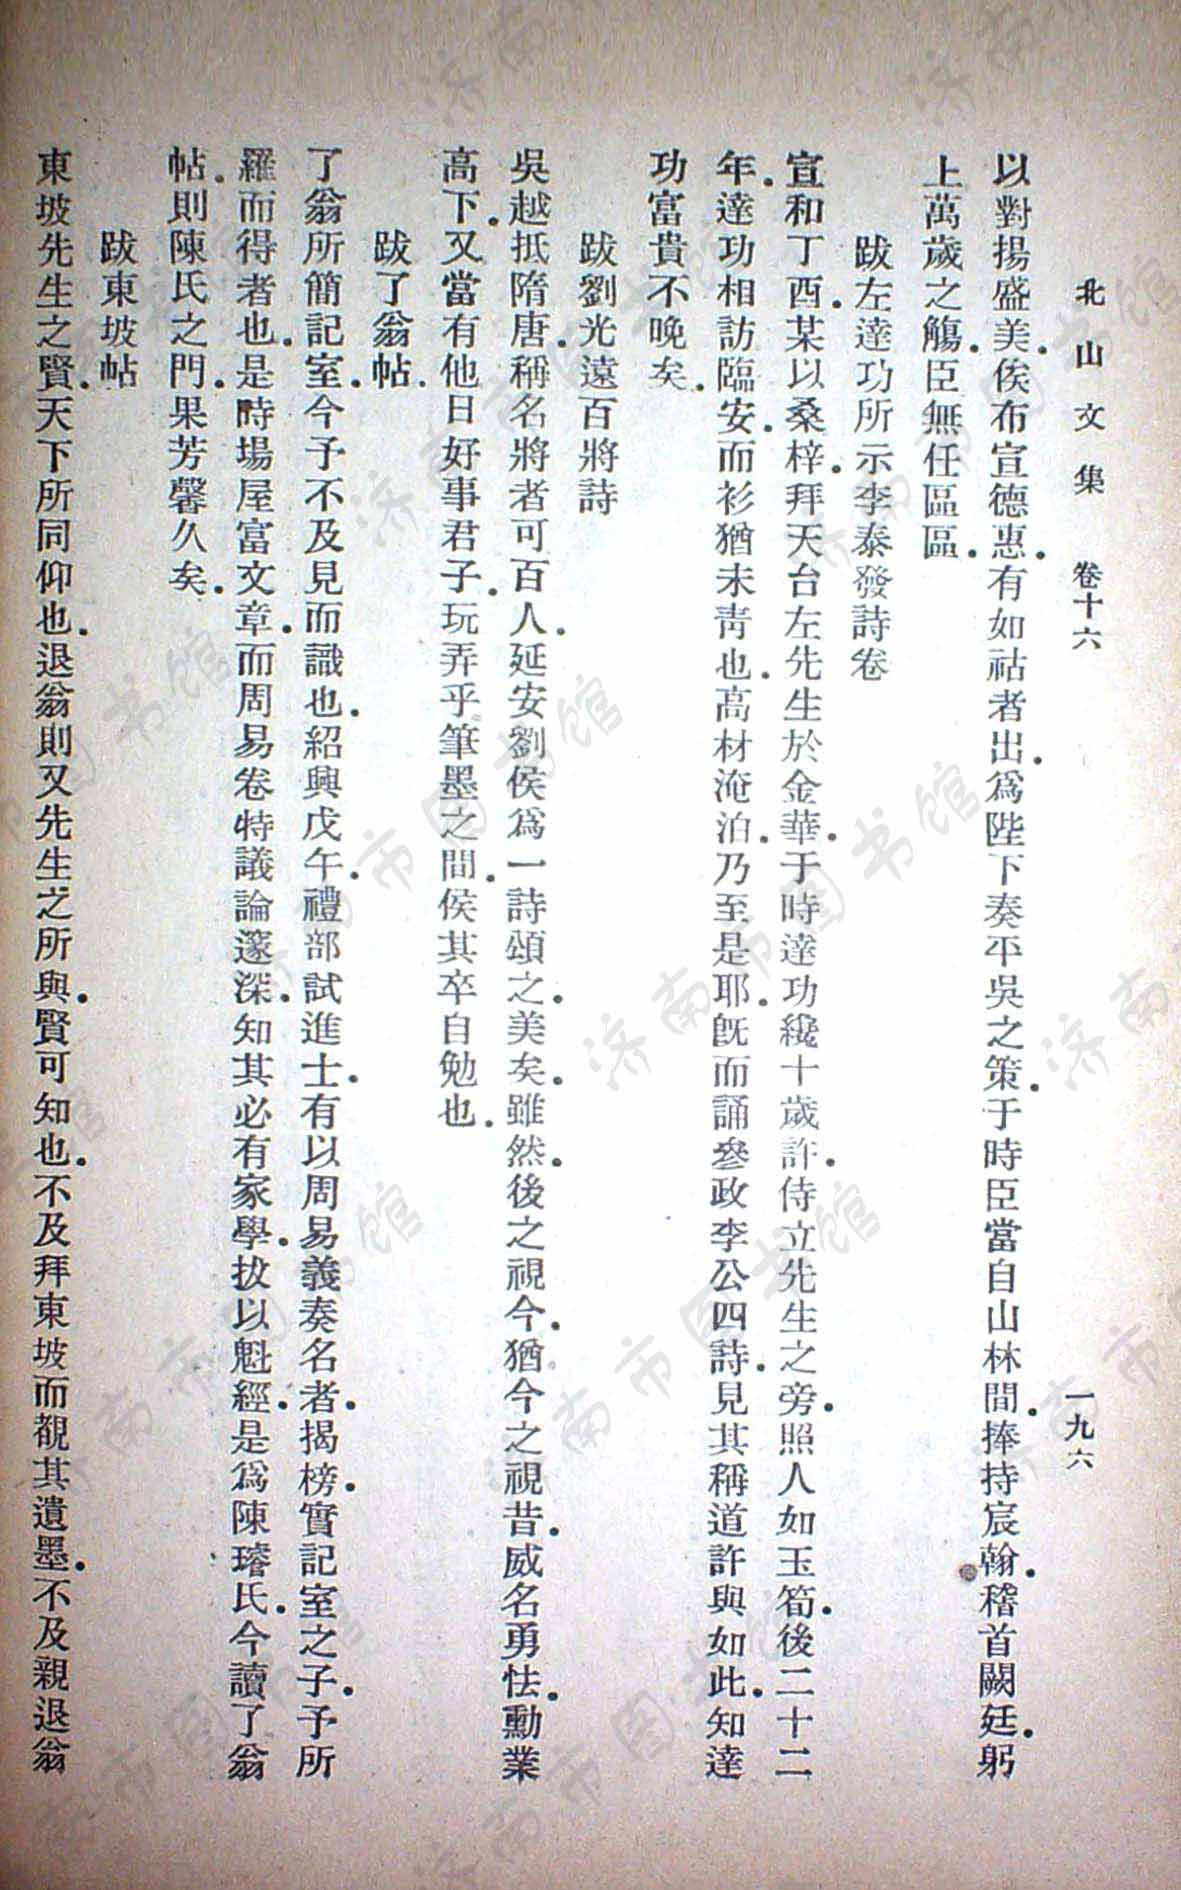 北山文集 卷十六 一九六
以對揚盛美.俟布宣德惠.有如祜者出.爲陛下奏平吳之策.于時臣當自山林間.捧持宸翰.稽首闕廷.躬
上萬歲之觴.臣無任區區.
跋左達功所示李泰發詩卷
宣和丁酉.某以桑梓.拜天台左先生於金華.于時達功纔十歲許.侍立先生之旁.照人如玉筍.後二十二
年.達功相訪臨安.而衫猶未靑也.高材淹泊.乃至是耶.旣而誦參政李公四詩.見其稱道許與如此.知達
功富貴不晚矣.
跋劉光遠百將詩
吳越抵隋唐.稱名將者可百人.延安劉侯爲一詩頌之.美矣.雖然.後之視今.猶今之視昔.威名勇怯.勳業
高下.又當有他日好事君子.玩弄乎筆墨之間.侯其卒自勉也.
跋了翁帖
了翁所簡記室.今予不及見而識也.紹興戊午.禮部試進士.有以周易義奏名者.揭榜.實記室之子.予所
羅而得者也.是時場屋富文章.而周易卷特議論邃深.知其必有家學.拔以魁經.是爲陳璿氏.今讀了翁
帖.則陳氏之門.果芳馨久矣.
跋東坡帖
東坡先生之賢.天下所同仰也.退翁則又先生之所與.賢可知也.不及拜東坡而觀其遺墨.不及親退翁
济南市图书馆
济南市图书馆
济南市图书馆
济南市图书馆
济南市图书馆